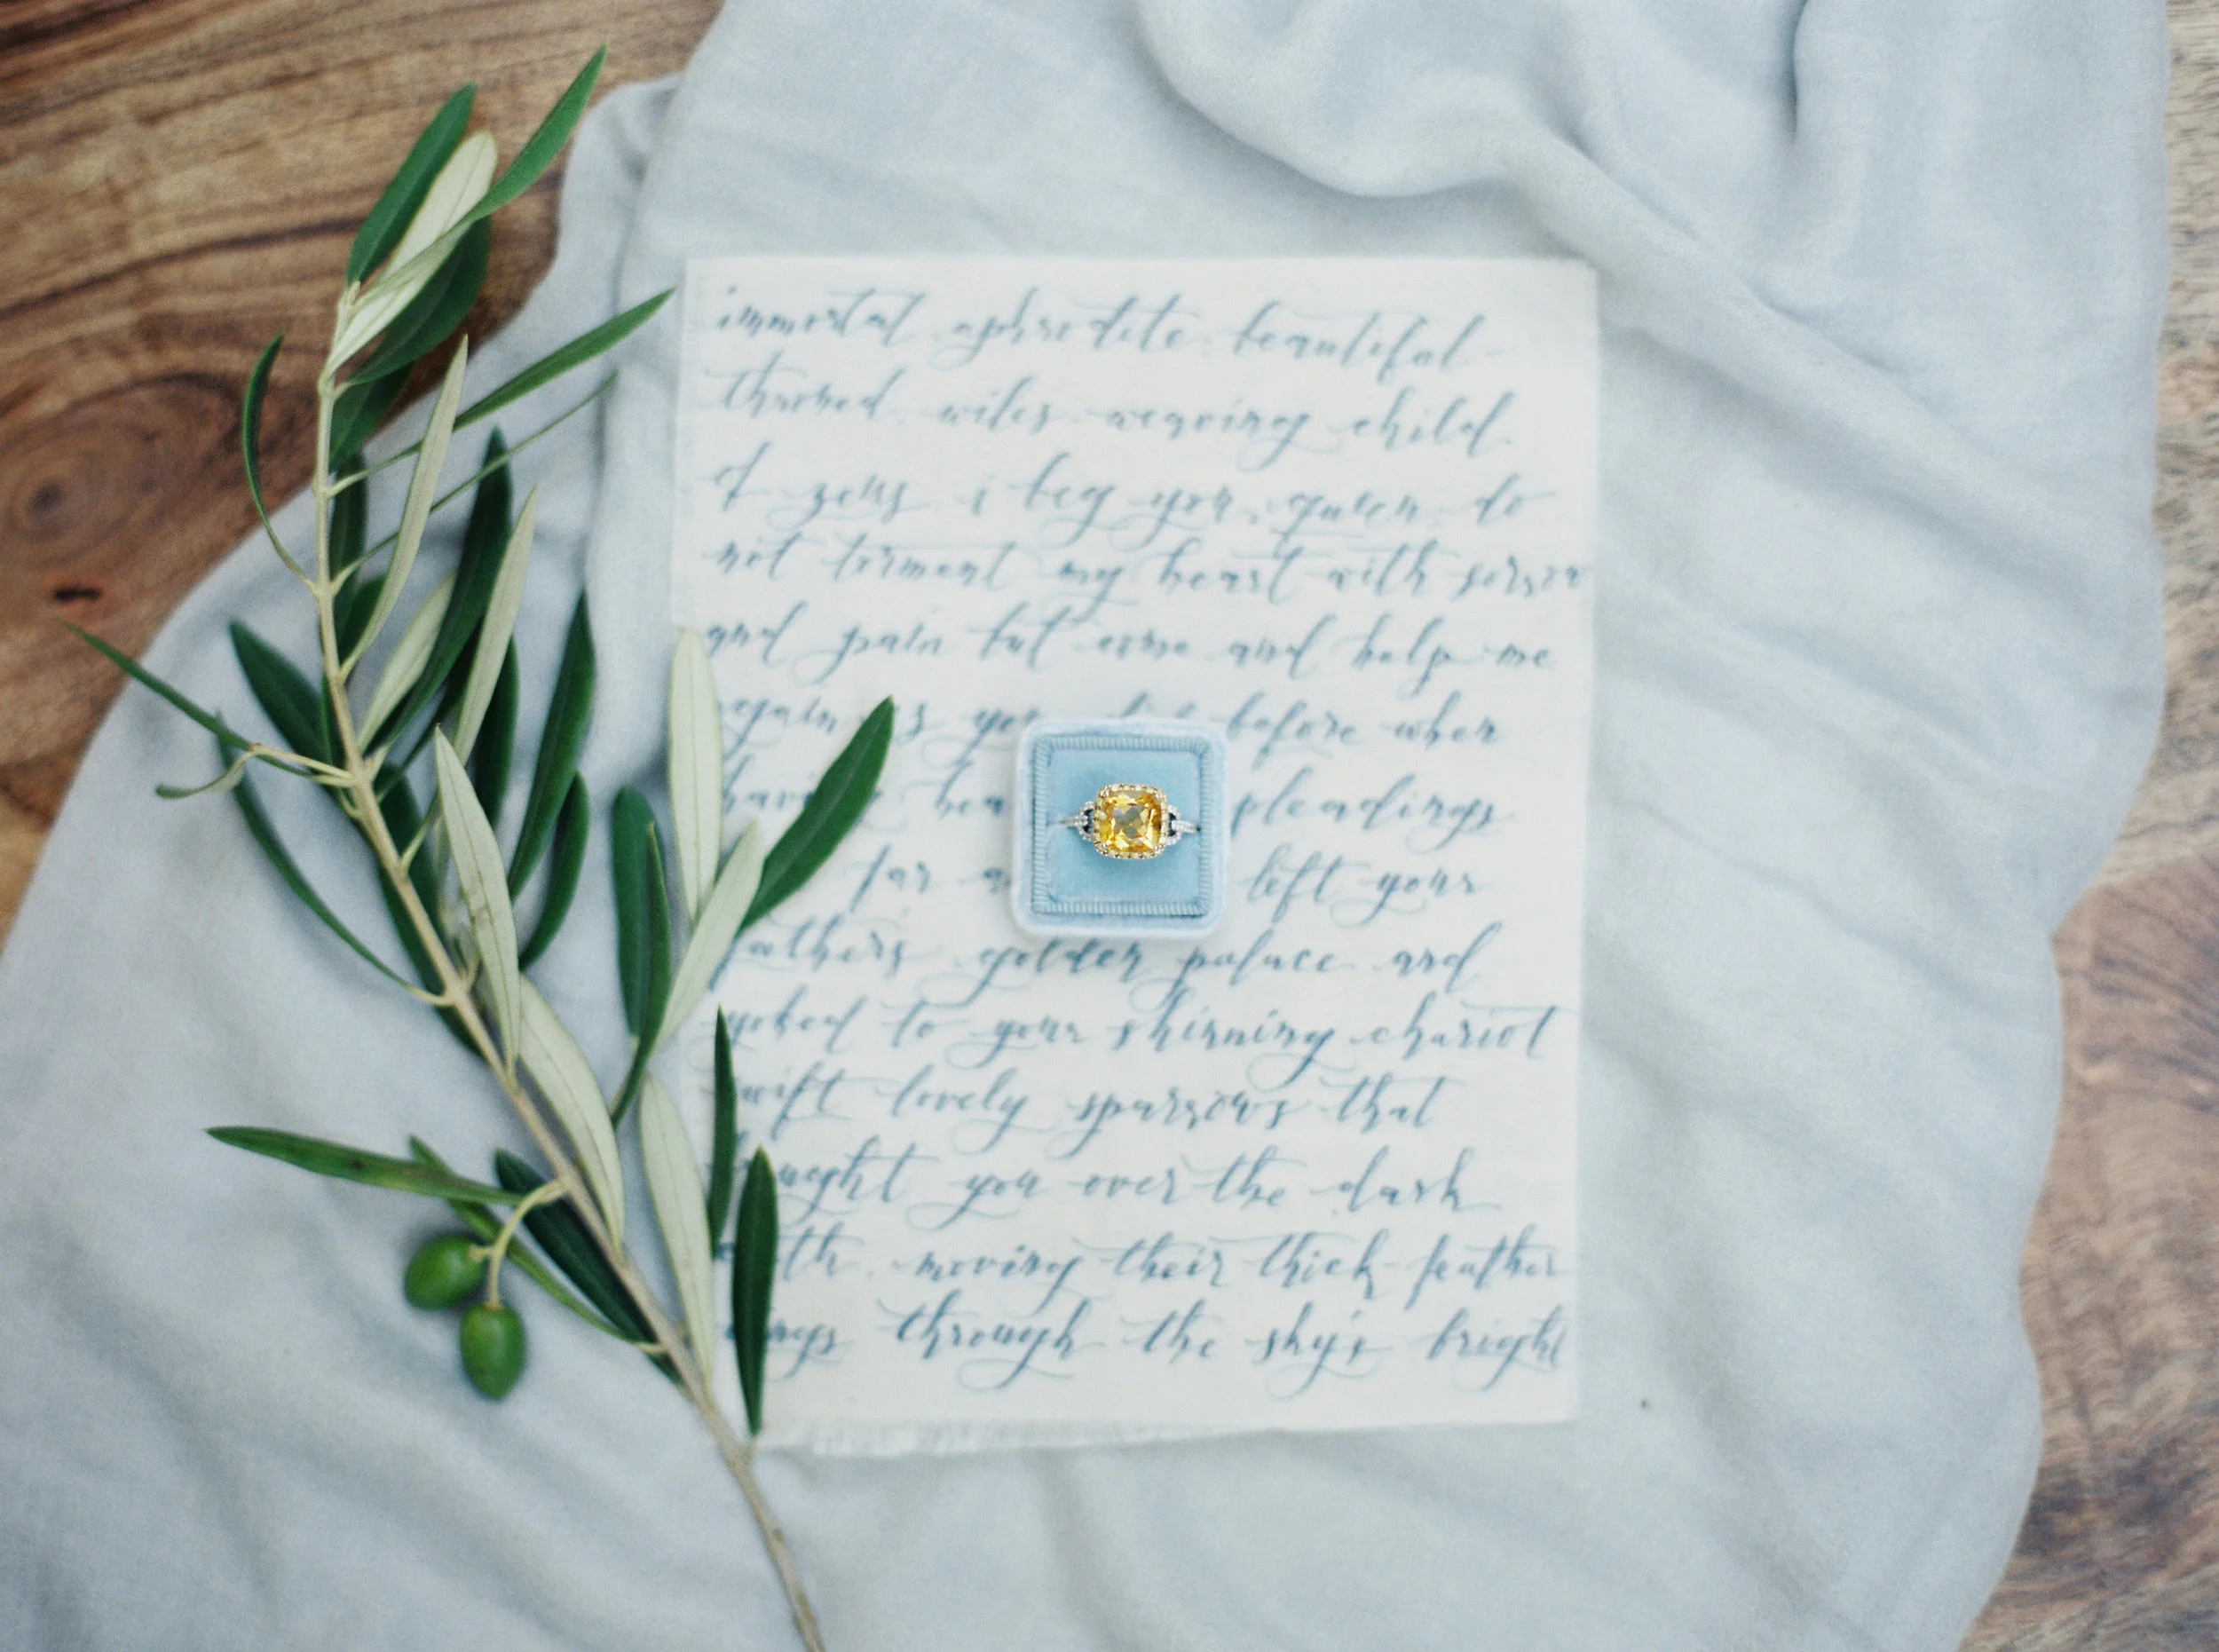 immortal aphrodite. beautiful-
throned. wiles-weaving child
of zeus. i beg you, queen, do
not torment my heart with sorrow
and pain but come and help me
again as you before when
having hea pleadings
far a left your
fathers golden palace and
yoked to your shinning chariot
swift lovely sparrows that
brought you over the dark
earth. moving their thick-feather
wings through the sky's bright